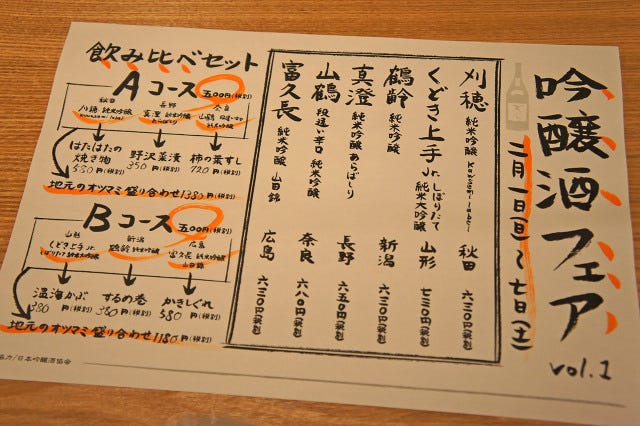 吟醸酒フェア
vol.1
二月一日(日)〜七日(土)
刈穂 純米吟醸 Kawasemi label 秋田 六三〇円(税別)
くどき上手Jr. しぼりたて 純米大吟醸 山形 七三〇円(税別)
鶴齢 純米吟醸 新潟 六三〇円(税別)
真澄 純米吟醸 あらばしり 長野 六五〇円(税別)
山鶴 段違い辛口 純米吟醸 奈良 六八〇円(税別)
富久長 純米吟醸 山田錦 広島 六三〇円(税別)
飲み比べセット
Aコース 500円(税別)
秋田 刈穂 純米吟醸 Kawasemi label
長野 真澄 純米吟醸 あらばしり
奈良 山鶴 段違い辛口 純米吟醸
はたはたの焼き物 550円(税別)
野沢菜漬 350円(税別)
柿の葉すし 720円(税別)
地元のオツマミ盛り合わせ1380円(税別)
Bコース 500円(税別)
山形 くどき上手Jr. しぼりたて 純米大吟醸
新潟 鶴齢 純米吟醸
広島 富久長 純米吟醸 山田錦
温海かぶ 380円(税別)
するの巻 380円(税別)
かきしぐれ 580円(税別)
地元のオツマミ盛り合わせ1180円(税別)
協力/日本吟醸酒協会